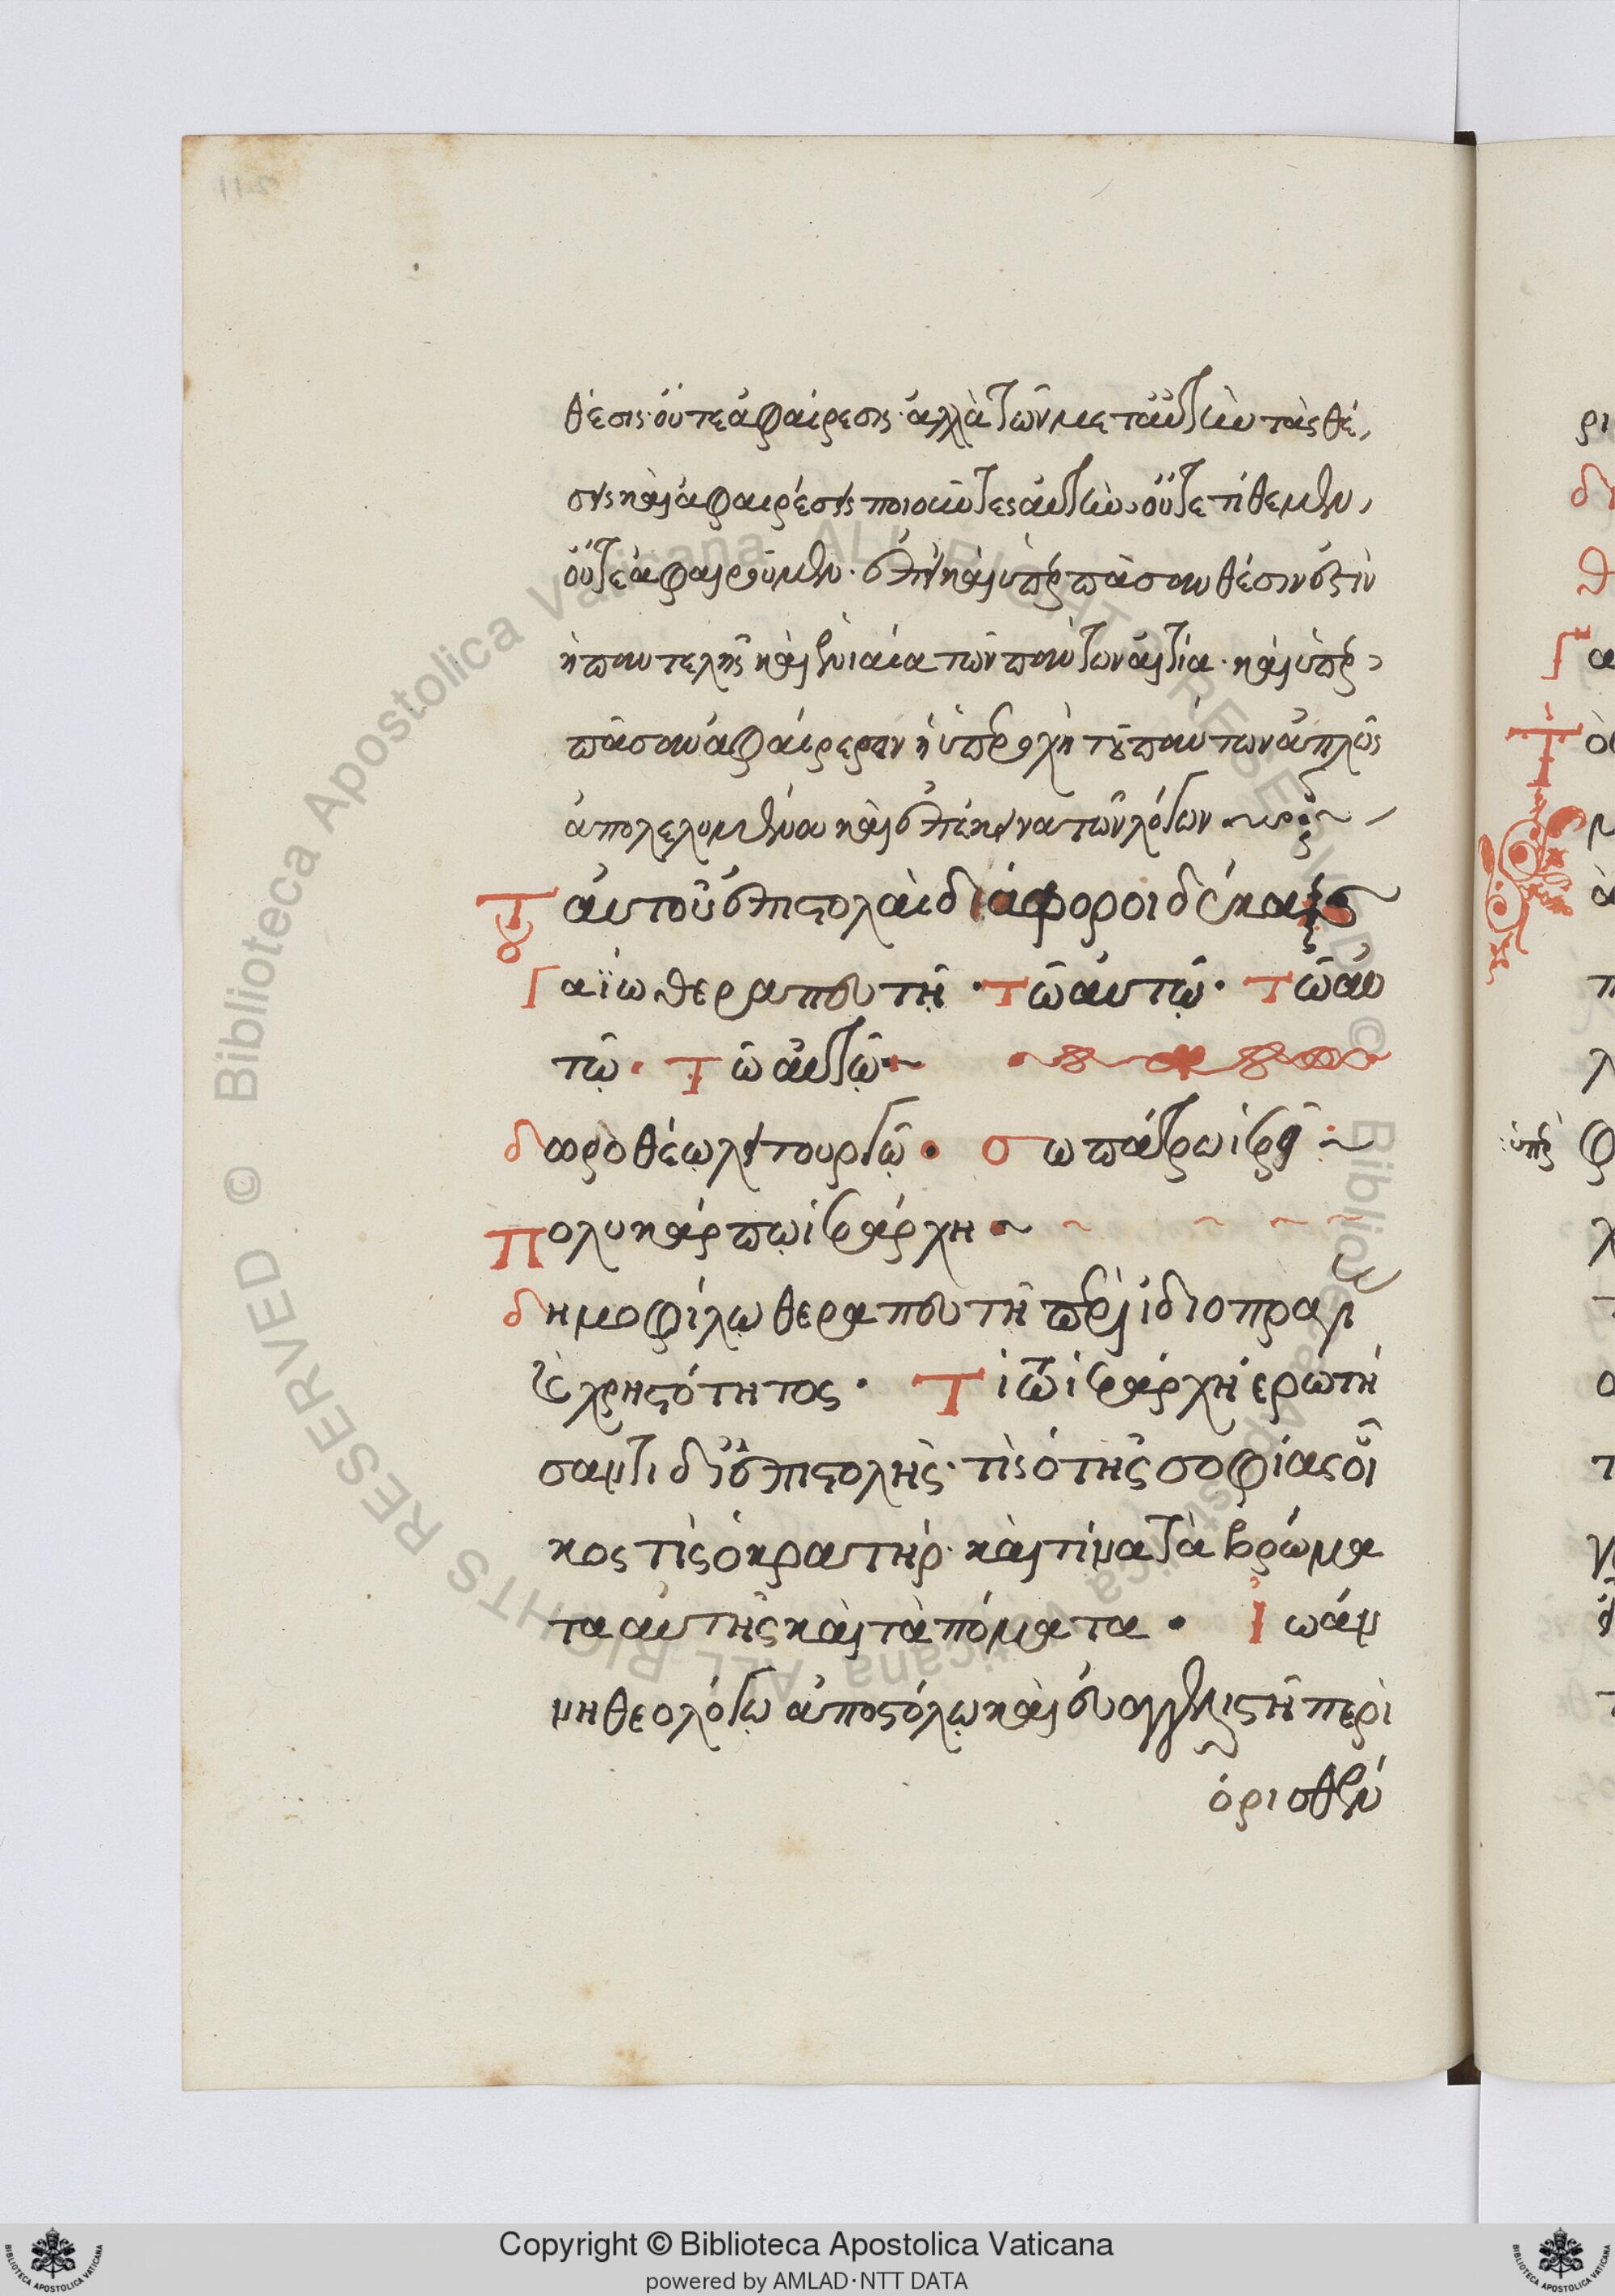 θέσις· οὔτε ἀφαίρεσις· ἀλλὰ τῶν μετ' αὐτὴν τὰς θέ
σεις καὶ ἀφαιρέσεις ποιοῦντες αὐτὴν, οὔτε τίθεμεν,
οὔτε ἀφαιροῦμεν· ἐπεὶ καὶ ὑπὲρ πᾶσαν θέσιν ἐστὶν
ἡ παντελὴς καὶ ἑνιαία τῶν πάντων αἰτία· καὶ ὑπὲρ
πᾶσαν ἀφαίρεσιν ἡ ὑπεροχὴ τοῦ πάντων ἁπλῶς
ἀπολελυμένου καὶ ἐπέκεινα τῶν λόγων
Τοῦ αὐτοῦ ἐπιστολαὶ διάφοροι δέκα
Γαΐω θεραπευτῆ· Τῶ αὐτῶ· Τῶ αὐ
τῶ· Τῶ αὐτῶ
δωροθέω λειτουργῶ· σωπάτρω ἱερεῖ
Πολυκάρπω ἱεράρχη
δημοφίλω θεραπευτῆ περὶ ἰδιοπραγίας
καὶ χρηστότητος· Τίτω ἱεράρχη ἐρωτή
σαντι δι' ἐπιστολῆς· τίς ὁ τῆς σοφίας οἶ
κος τίς ὁ κρατήρ· καὶ τίνα τὰ βρώμα
τα αὐτῆς καὶ τὰ πόματα· Ἰωάν
νη θεολόγω ἀποστόλω καὶ εὐαγγελιστῆ περὶ
ὁρισθέν
Copyright © Biblioteca Apostolica Vaticana
powered by AMLAD·NTT DATA